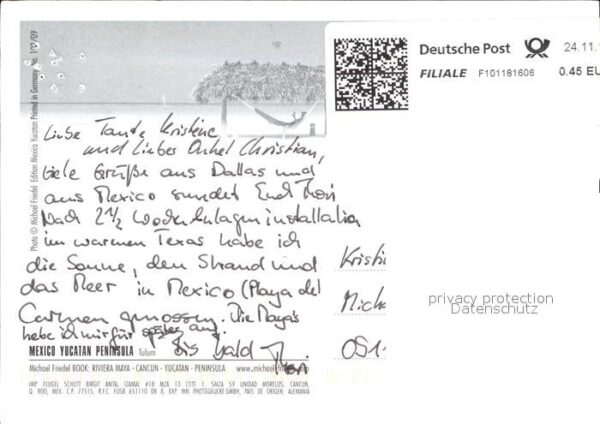 Deutsche Post
24.11.1
FILIALE F101181606 0.45 EU
Photo © Michael Friedel Edition Mexico Yucatan Printed in Germany No. 119/09
Liebe Tante Kristine
und lieber Onkel Christian,
viele Grüße aus Dallas und
aus Mexico sendet Euch
Nach 2½ Wochen Anlageninstallation
im warmen Texas habe ich
die Sonne, den Strand und
das Meer in Mexico (Playa del
Carmen genossen. Die Maya's
hebe ich mir für später auf.
Bis bald
Kristi
Micha
091
privacy protection
Datenschutz
MEXICO YUCATAN PENINSULA Tulum
Michael Friedel BOOK: RIVIERA MAYA - CANCUN - YUCATAN - PENINSULA www.michael
IMP. FLUGEL SCHUTT BIRGIT ANITA, IZAMAL #18 MZA 13 COTE 1. SMZA 59 UNIDAD MORELOS, CANCUN,
Q. ROO, MEX. C.P. 77515, R.F.C. FUSB 651110 DB 8, EXP. MM PHOTOGALICKE GMBH, PAIS DE ORIGEN ALEMANIA